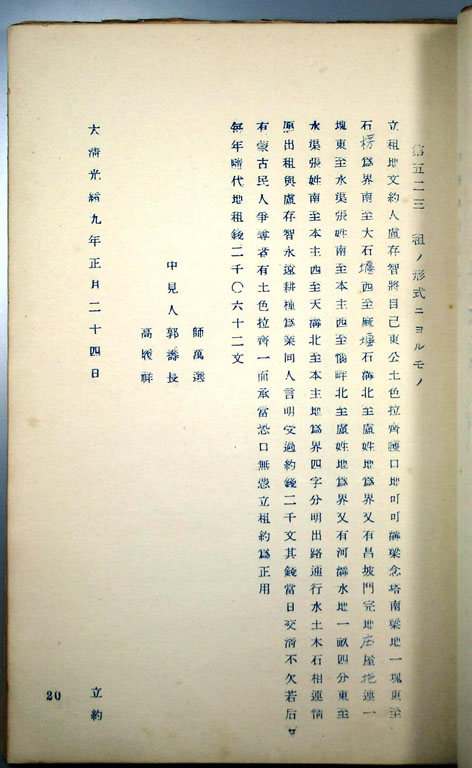 第五二三 租ノ形式ニヨルモノ
立租地文約人盧存智將自己東公土色拉齊護口地可可溝梁念塔南梁地一塊東至
石楞爲界南至大石堰西至廠堰石溝北至盧姓地爲界又有昌坡門完地店屋地連一
塊東至水渠張姓南至本主西至畔北至盧姓地爲界又有河溝水地一畝四分東至
水渠張姓南至本主西至天溝北至本主地爲界四字分明出路通行水土木石相連情
愿出租與盧存智永遠耕種爲業同人言明交過約錢二千文其錢當日交清不欠若后
有蒙古民人爭奪者有土色拉齊一面承當恐口無憑立租約爲正用
每年隨代地租錢二千〇六十二文
師萬選
中見人郭壽長
高祥
大清光緒九年正月二十四日 立約
20